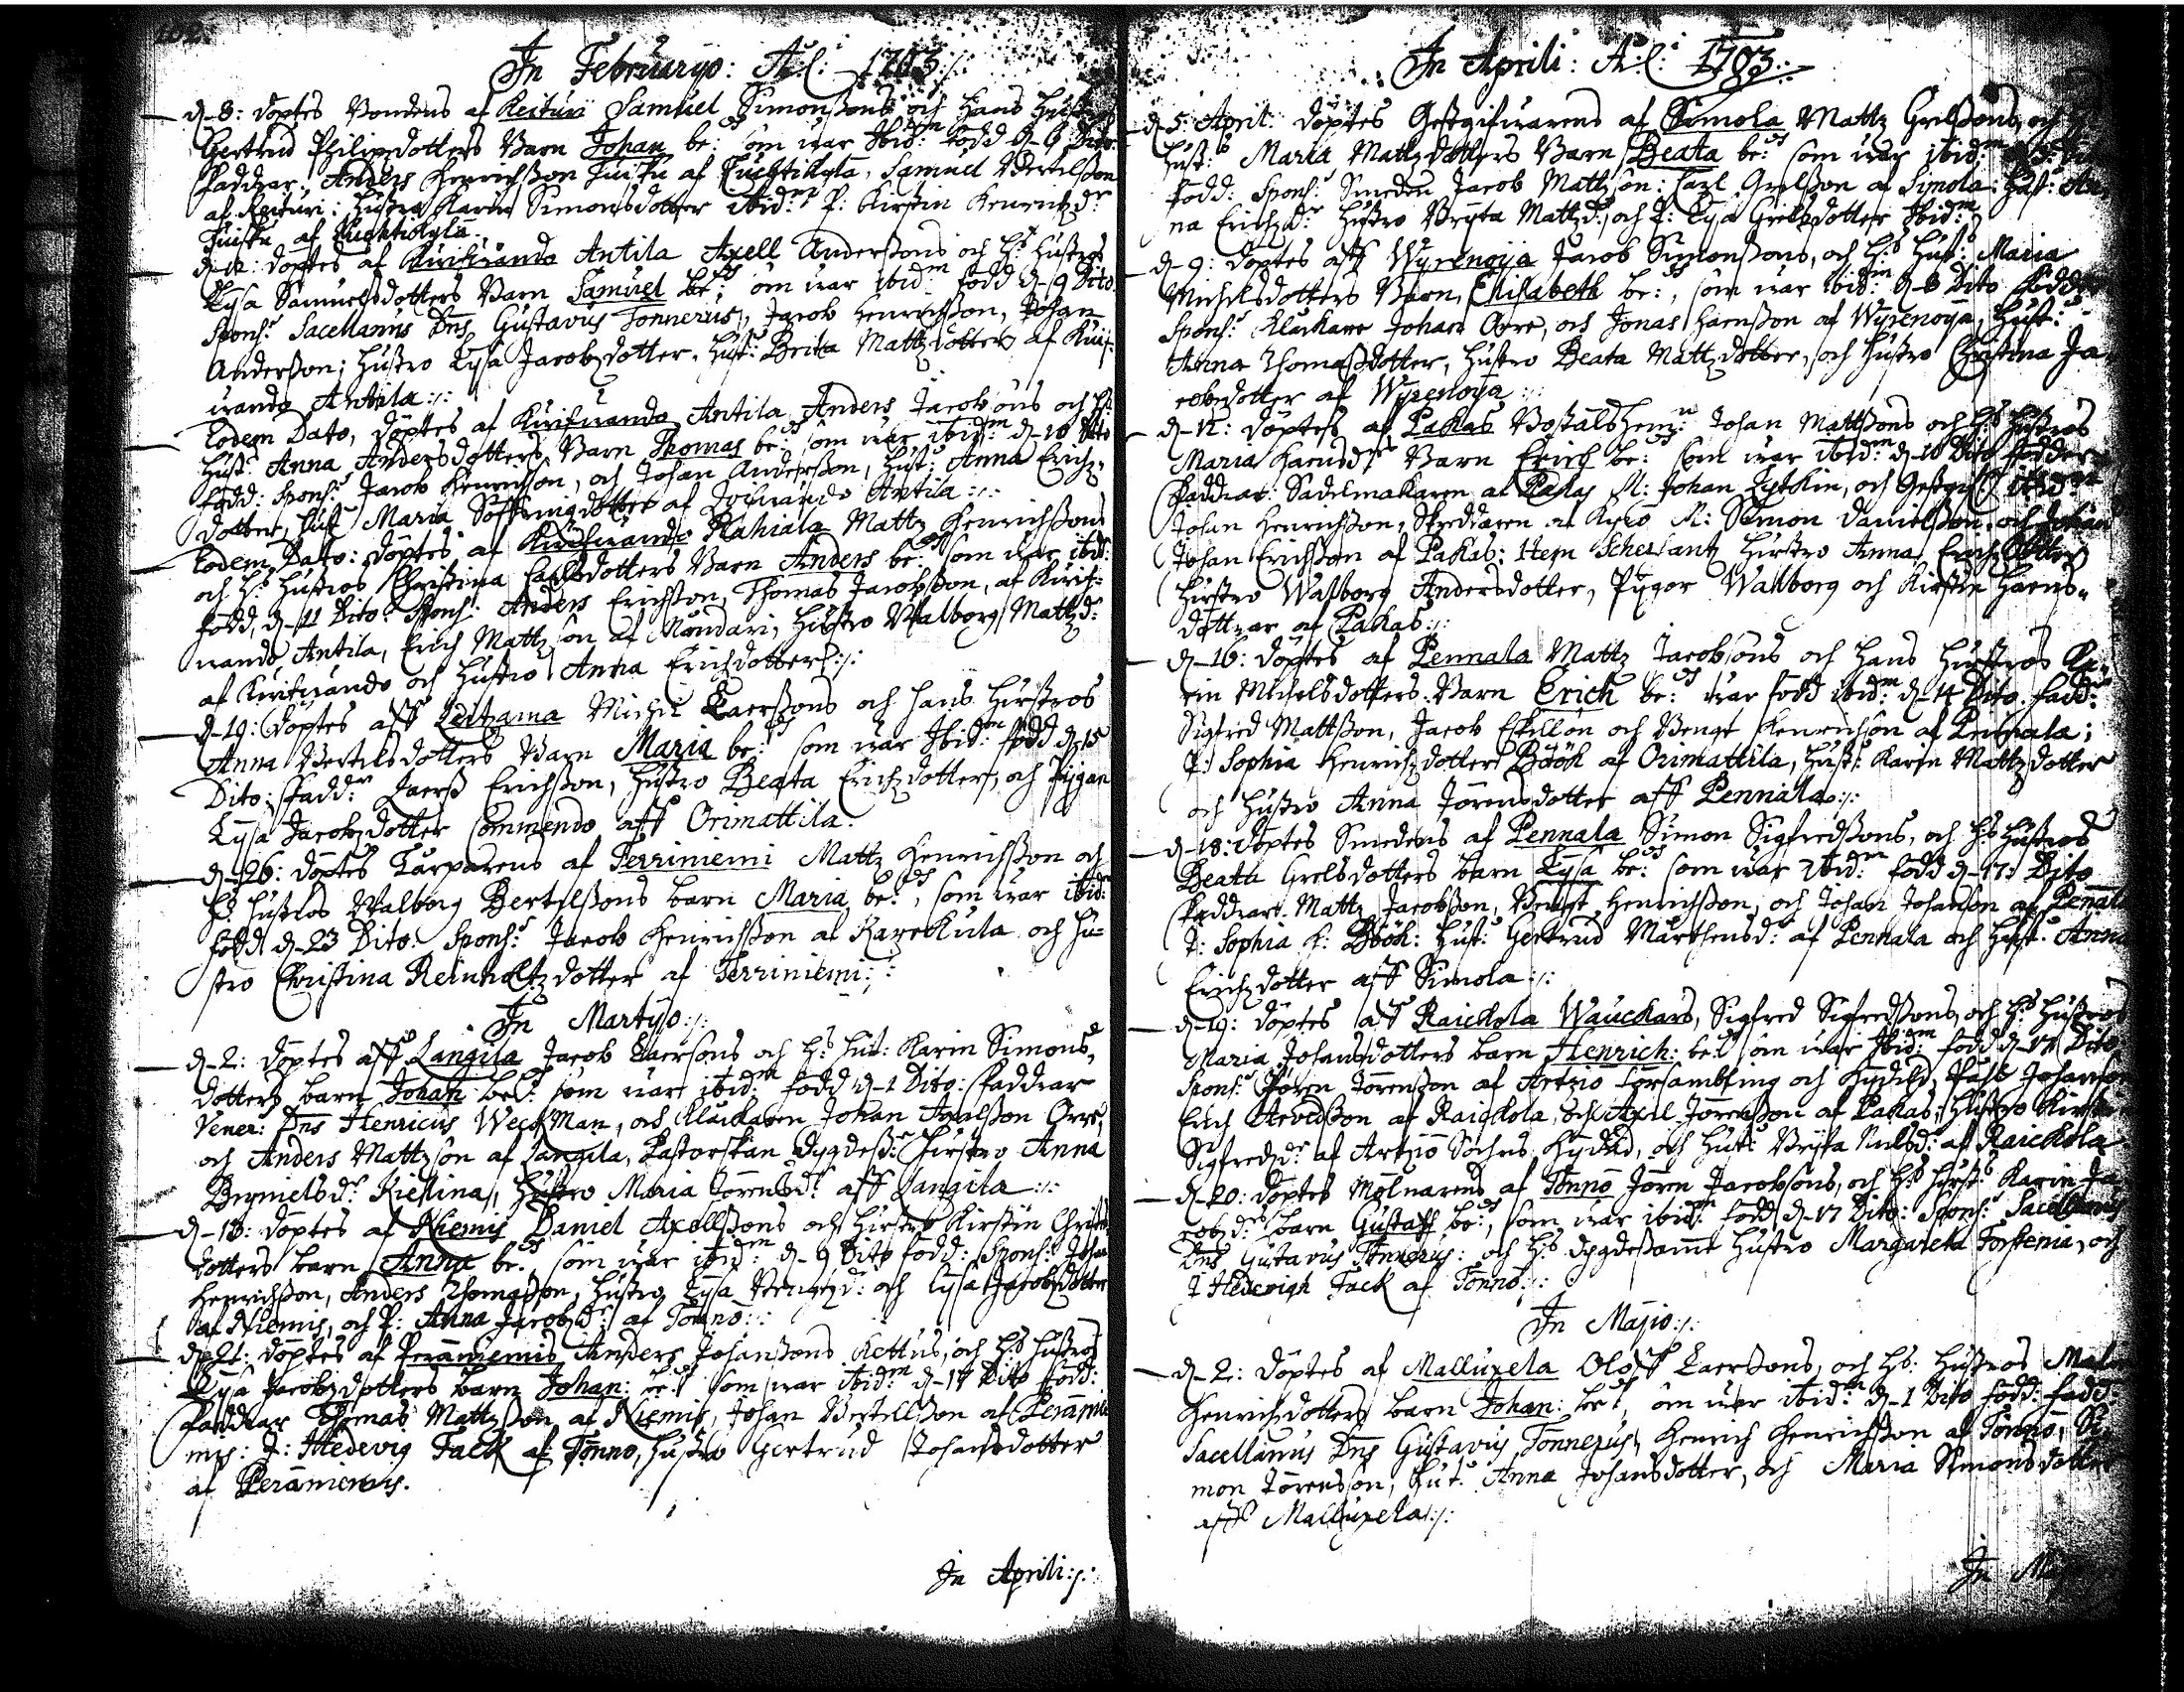 102.
In Februaryo: A:o: 1703:/:
d. 8: döptes Bondens af Keituri Samuel Simonßons och Hans Hustros
Gertrud Philipsdotters Barn Johan be:d som war Ibid:m född d. 6 Dito
Faddrar: Anders Henrichßon Kuisk af Luchtikylä, Samuel Bertilßon
af Keituri: Hustro Karin Simonsdotter ibid:m P: Kirstin Henrichzd:r
Kuisk af Luchtikylä.
d. 12: döptes af Kuifwando Antila Axell Anderßons och H:s Hustros
Lysa Samuelsdotters Barn Samuel be:d som war ibid:m född d. 9 Dito
Spons: Sacellanus Dns Gustavus Tonnerus, Jacob Henrichßon, Johan
Anderßon; Hustro Lysa Jacobzdotter, Hust: Brita Mattzdotter af Kuif-
wando Antila:/:
Eodem Dato, döptes af Kuifwando Antila Anders Jacobsons och H:s
Hust: Anna Andersdotters Barn Thomas be:d som war ibid:m d. 10 Dito
född: Spons: Jacob Henrichson, och Johan Anderßon, Hust: Anna Erichz-
dotter, Hust Maria Söffringdotter af Kuifwando Antila:/:
Eodem Dato: döptes af Kuifwando Rahiala Mattz Henrichßons
och H:s Hustros Christina Carlsdotters Barn Anders be:d som war ibid:
född d. 11 Dito: Spons: Anders Erichßon, Thomas Jacobßon, af Kuif-
wando Antila, Erich Mattzson af Mondari, Hustro Walborg Mattzd:
af Kuifwando och Hustro Anna Erichdotter:/:
d. 19: döptes aff Leitzama Michel Laerßons och hans Hustros
Anna Bertelsdotters Barn Maria be:d som war Ibid:m född d. 15
Dito: Fadd:r Laerß Erichßon, Hustro Beata Erichzdotter, och Pygan
Lysa Jacobzdotter Commendo aff Orimattila.
d. 26: döptes Torparens af Terriniemi Mattz Henrichßon och
H:s Hustros Walborg Bertelßons barn Maria be:d, som war ibid:
född d. 23 Dito: Spons: Jacob Henrichßon af Karekula och Hu-
stro Christina Reinholtzdotter af Terriniemi:/:
In Martyo:/:
d. 2: döptes aff Langila Jacob Laersons och H:s Hust: Karin Simons-
dotters barn Johan be:d som war ibid:m född d. 1 Dito: Faddrar
Vener: Dns Henricus Weckman, och Kluckaren Johan Orre,
och Anders Mattzson af Langila, Pastorskan dygdeß: Hustro Anna
Hustro Maria Jörensd:r aff Langila:/:
d. 13: döptes af Niemis Daniel Axellßons och Hustros Kirstin Christ-
dotters barn Anna be:d som war ibid:m d. 9 Dito född: Spons: Johan
Henrichßon, Anders Thomaßon, Hustro Lysa Bengtzd: och Lysa Jacobzdotter
af Niemis, och P: Anna Jacobzd:r af Tönnö:/:
d. 21: döptes af Peränniemis Anders Johanßons Kettus, och H:s Hustros
Lysa Jacobzdotters barn Johan: be:d som war ibid:m d. 17 Dito född:
Faddrar Thomas Mattzßon af Niemis, Johan Bertellßon af Peränie-
mis: J: Hedevig Fack af Tönno, Hustro Gertrud Johansdotter
af Peräniemis.
In Aprili:/:
In Aprili: A:o: 1703:
d. 5: April: döptes Gestgifwarens af Simola Mattz Grelßons, och
Hust:s Maria Mattzdotters Barn Beata be:d som war ibid:m
född: Spons: Smeden Jacob Mattzson: Carl Grelßon af Simola: Hust: An-
na Erichzd:r Hustro Bryta Mattzd:, och P: Lysa Grelsdotter Ibid:m
d. 9: döptes aff Wyrenoya Jacob Simonßons, och H:s Hust: Maria
Michelsdotters Barn, Elisabeth be:, som war ibid:m d. 8 Dito född
Spons: Kluckare Johan Orre, och Jonas Hanßon af Wyrenoya, Hust:
Anna Thomaßdotter, Hustro Beata Mattzdotter, och Hustro Christina Ja-
cobsdotter af Wyrenoya:/:
d. 12: döptes af Pakas Bostälshem:n Johan Mattßons och H:s Hustros
Maria Barn Erich be:d som war ibid:m d. 10 Dito född
Faddrar: Sadelmakaren af Pakas M: Johan Lytekin, och
Johan Henrichßon, Skreddaren af Kyrö M: Simon Danielßon och Johan
Johan Erichßon af Pakas: Item Schersant Hustro Anna Erichzdotter
Hustro Walborg Andersdotter, Pygor Walborg och Kirstin
dottrar af Pakas:/:
d. 16: döptes af Pennala Mattz Jacobsons och Hans Hustros Ka-
rin Michelsdotters Barn Erich be:d war född ibid:m d. 14 Dito. Fadd:r
Sigfred Mattßon, Jacob Eskilson och Bengt Henrichson af Pennala;
P: Sophia Henrichzdotter Bööck af Orimattila, Hust: Karin Mattzdotter
och Hustro Anna Jörensdotter aff Pennala:/:
d. 18: döptes Smedens af Pennala Simon Sigfredßons, och H:s Hustros
Beata Grelsdotters barn Lysa be:d som war Ibid:m född d. 17: Dito
Faddrar: Mattz Jacobßon, Bengt Henrichßon, och Johan Johanson af Penala
J: Sophia H: Bööck: Hust: Gertrud Mårthensd: af Pennala och Hust: Anna
Erichzdotter aff Simola:/:
d. 19: döptes aff Raickola Wauckars, Sigfred Sigfredßons, och H:s Hustros
Maria Johansdotters barn Henrich: be:d som war Ibid:m född d. 17 Dito
Spons: Jören Jörenßon af Artzio försambling och Påhl Johanson
Erich Arvedßon af Raickola, och Axel Jörenßon af Pakas; Hustro Kirstin
Sigfredzd:r af Artzio Sochns och Hust: Bryta Nilsd: af Raickola
d. 20: döptes Mölnarens af Tönnö Jören Jacobsons, och H:s Hust:s Karin Ja-
cobzd:rs barn Gustaff be:d, som war ibid:m född d. 17 Dito: Spons: Sacellanus
Dns Gustavus Tonnerus: och H:s dygdesamme Hustro Margareta Forstenia, och
J Hedevigh Fack af Tönnö:/:
In Majo:/:
d. 2: döptes af Mallusela Oloff Laerßons, och H:s: Hustros Mal
Henrichzdotters barn Johan: be:d, som war ibid:m d. 1 Dito född: Fadd:
Sacellanus Dns Gustavus Tonnerus, Henrich Henrichßon af Tönnö, Si-
mon Jörensson, Hust: Anna Johansdotter, och Maria Simonsdotter
aff Mallusela:/:
In